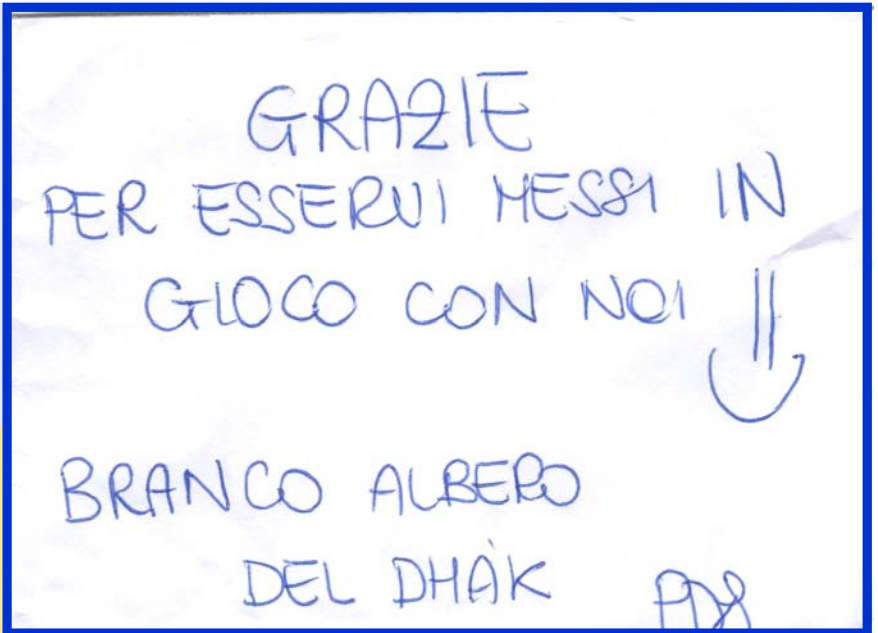 GRAZIE
PER ESSERVI MESSI IN
GIOCO CON NOI
BRANCO ALBERO
DEL DHÀK